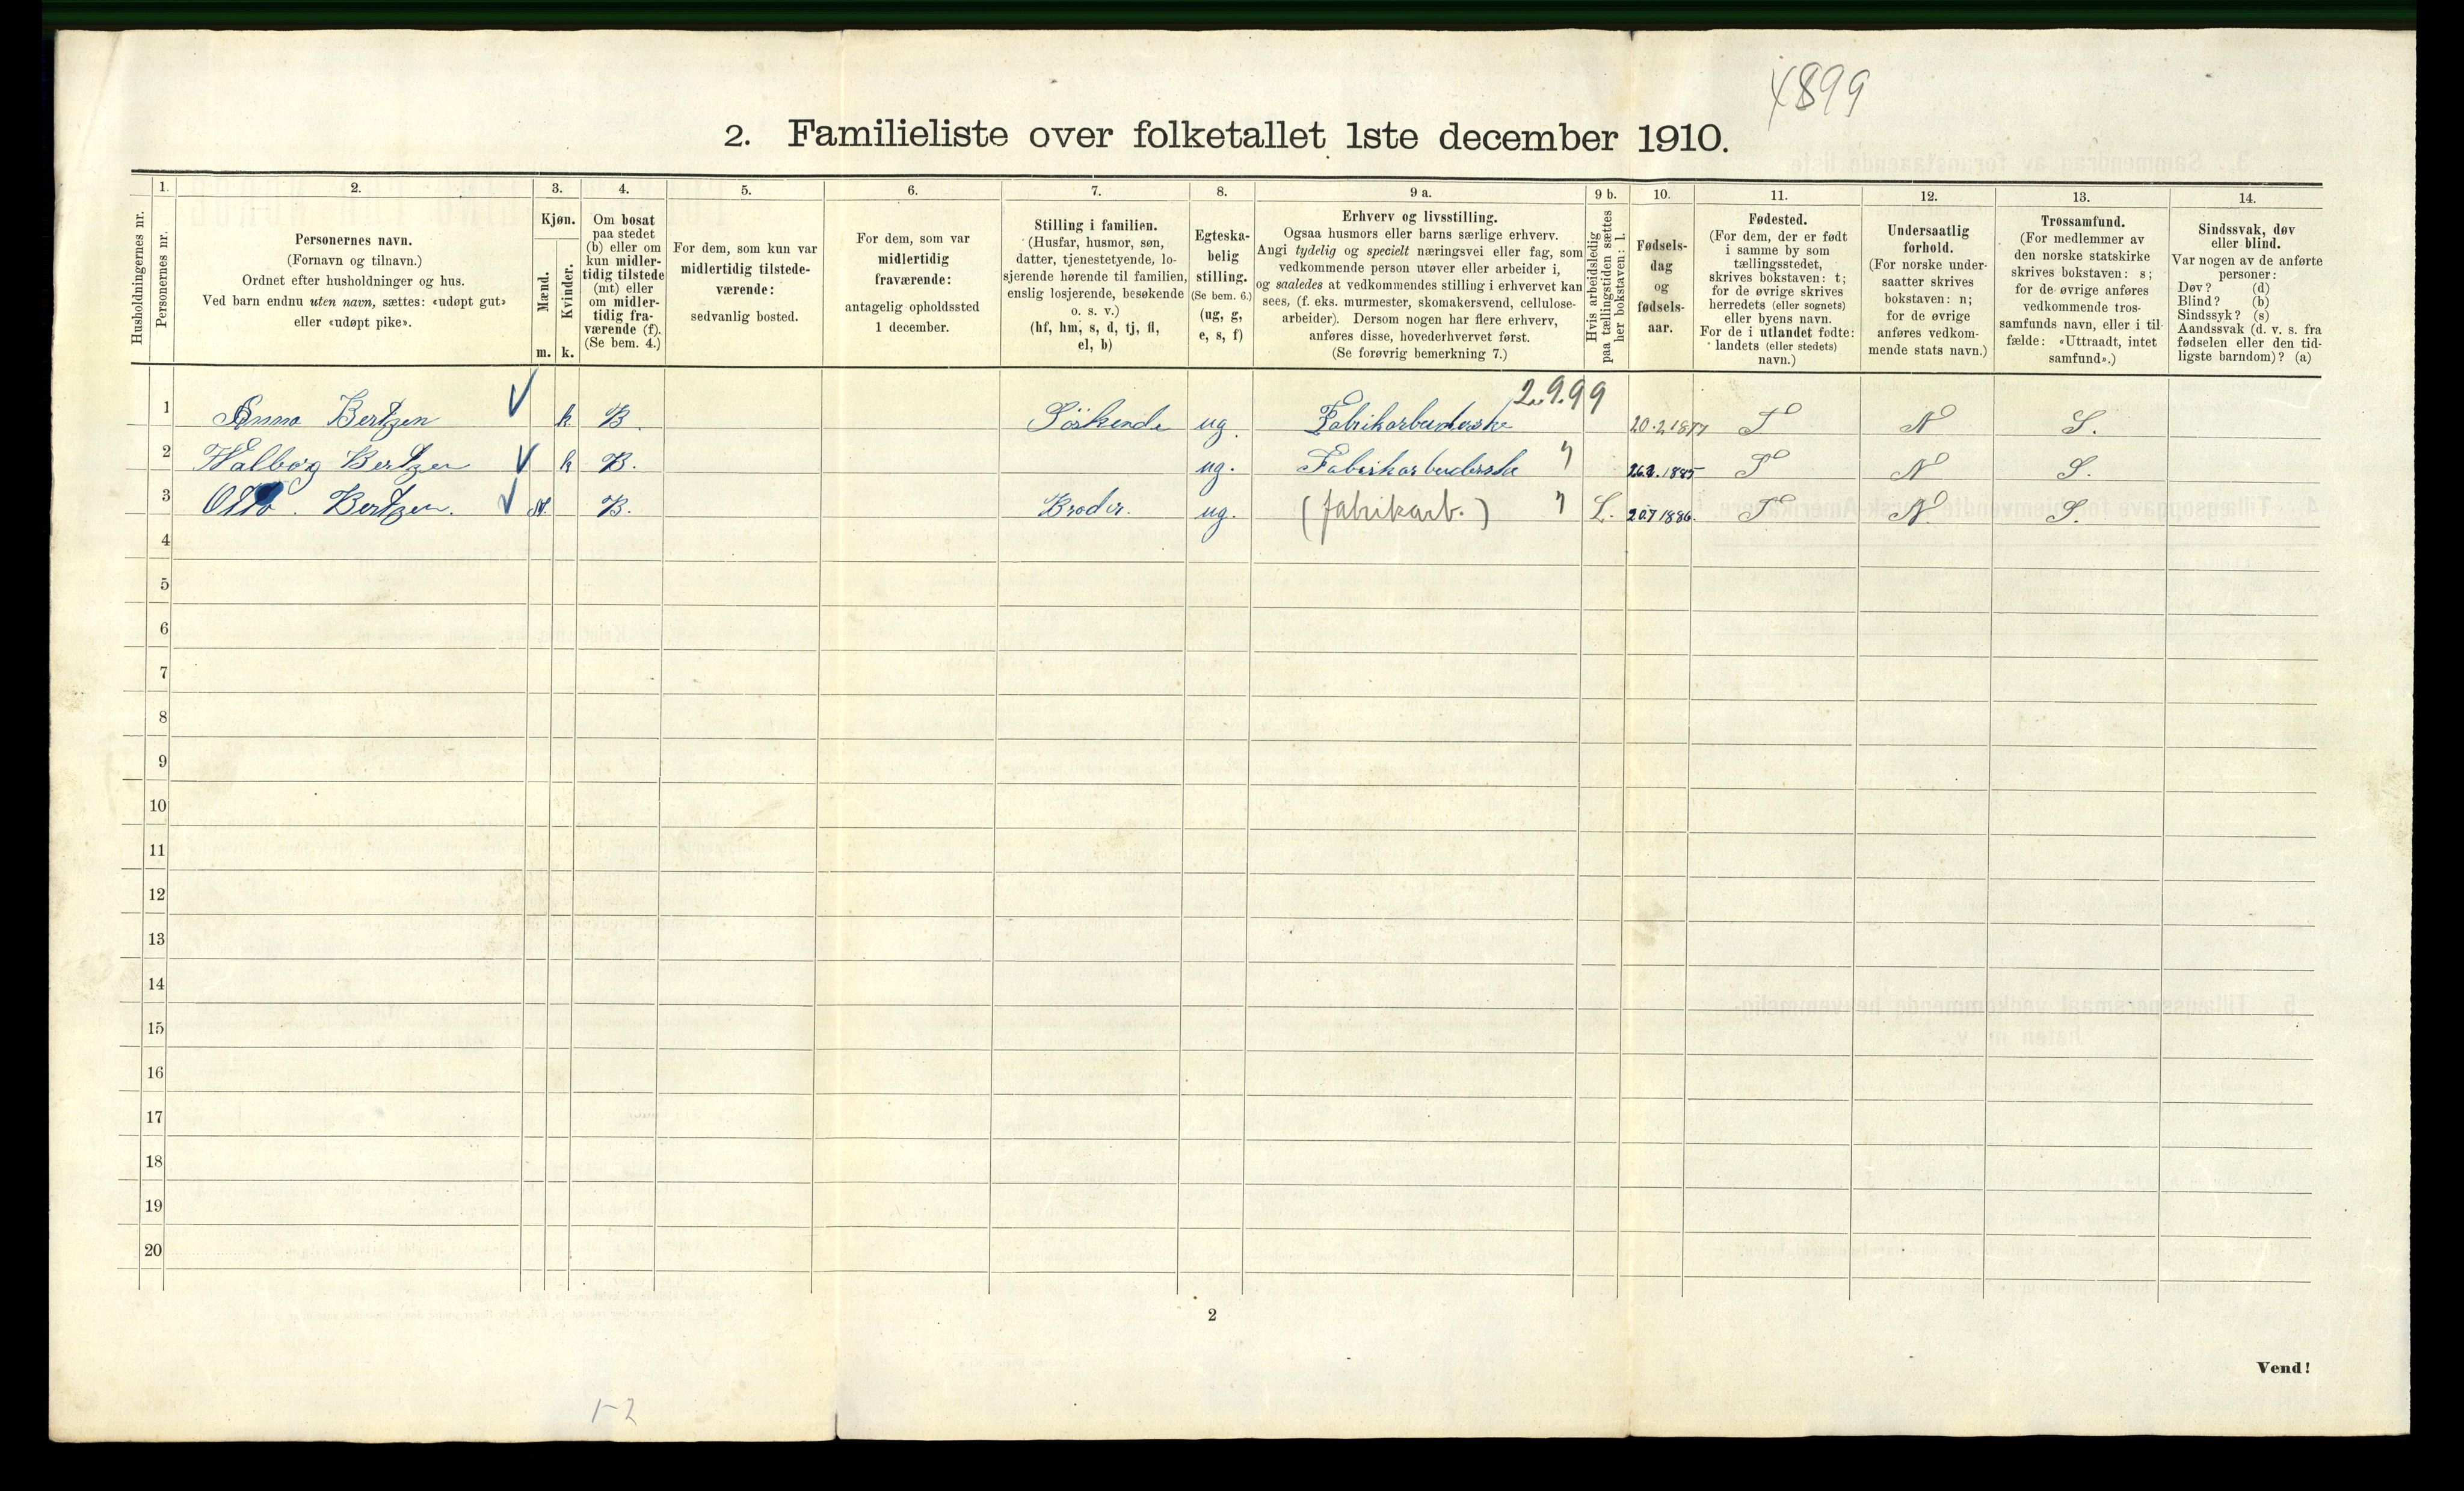 4899
2. Familieliste over folketallet 1ste december 1910.
1. 2. 3. 4. 5. 6. 7. 8. 9 a. 9 b. 10. 11. 12. 13. 14.
Husholdningernes nr.
Personernes nr.
Personernes navn.
(Fornavn og tilnavn.)
Ordnet efter husholdninger og hus.
Ved barn endnu uten navn, sættes: «udøpt gut»
eller «udøpt pike».
Kjøn.
Mænd.
Kvinder.
m. k.
Om bosat
paa stedet
(b) eller om
kun midler-
tidig tilstede
(mt) eller
om midler-
tidig fra-
værende (f).
(Se bem. 4.)
For dem, som kun var
midlertidig tilstede-
værende:
sedvanlig bosted.
For dem, som var
midlertidig
fraværende:
antagelig opholdssted
1 december.
Stilling i familien.
(Husfar, husmor, søn,
datter, tjenestetyende, lo-
sjerende hørende til familien,
enslig losjerende, besøkende
o. s. v.)
(hf, hm, s, d, tj, fl,
el, b)
Egteska-
belig
stilling.
(Se bem. 6.)
(ug, g,
e, s, f)
Erhverv og livsstilling.
Ogsaa husmors eller barns særlige erhverv.
Angi tydelig og specielt næringsvei eller fag, som
vedkommende person utøver eller arbeider i,
og saaledes at vedkommendes stilling i erhvervet kan
sees, (f. eks. murmester, skomakersvend, cellulose-
arbeider). Dersom nogen har flere erhverv,
anføres disse, hovederhvervet først.
(Se forøvrig bemerkning 7.)
Hvis arbeidsledig
paa tællingstiden sættes
her bokstaven: l.
Fødsels-
dag
og
fødsels-
aar.
Fødested.
(For dem, der er født
i samme by som
tællingsstedet,
skrives bokstaven: t;
for de øvrige skrives
herredets (eller sognets)
eller byens navn.
For de i utlandet fødte:
landets (eller stedets)
navn.)
Undersaatlig
forhold.
(For norske under-
saatter skrives
bokstaven: n;
for de øvrige
anføres vedkom-
mende stats navn.)
Trossamfund.
(For medlemmer av
den norske statskirke
skrives bokstaven: s;
for de øvrige anføres
vedkommende tros-
samfunds navn, eller i til-
fælde: «Uttraadt, intet
samfund».)
Sindssvak, døv
eller blind.
Var nogen av de anførte
personer:
Døv? (d)
Blind? (b)
Sindssyk? (s)
Aandssvak (d. v. s. fra
fødselen eller den tid-
ligste barndom)? (a)
2.9.99
1 Anna Bertzen k B. Söskende ug. Fabrikarbeiderske 20.2.1877 T N S.
2 Walborg Bertzen k B. ug. Fabrikarbeiderske " 1885 T N S.
3 Otto. Bertzen. M. B. Broder. ug. (fabrikarb.) " L. 20.7 1886. T N. S.
4
5
6
7
8
9
10
11
12
13
14
15
16
17
18
19
20
2
Vend!
1-2